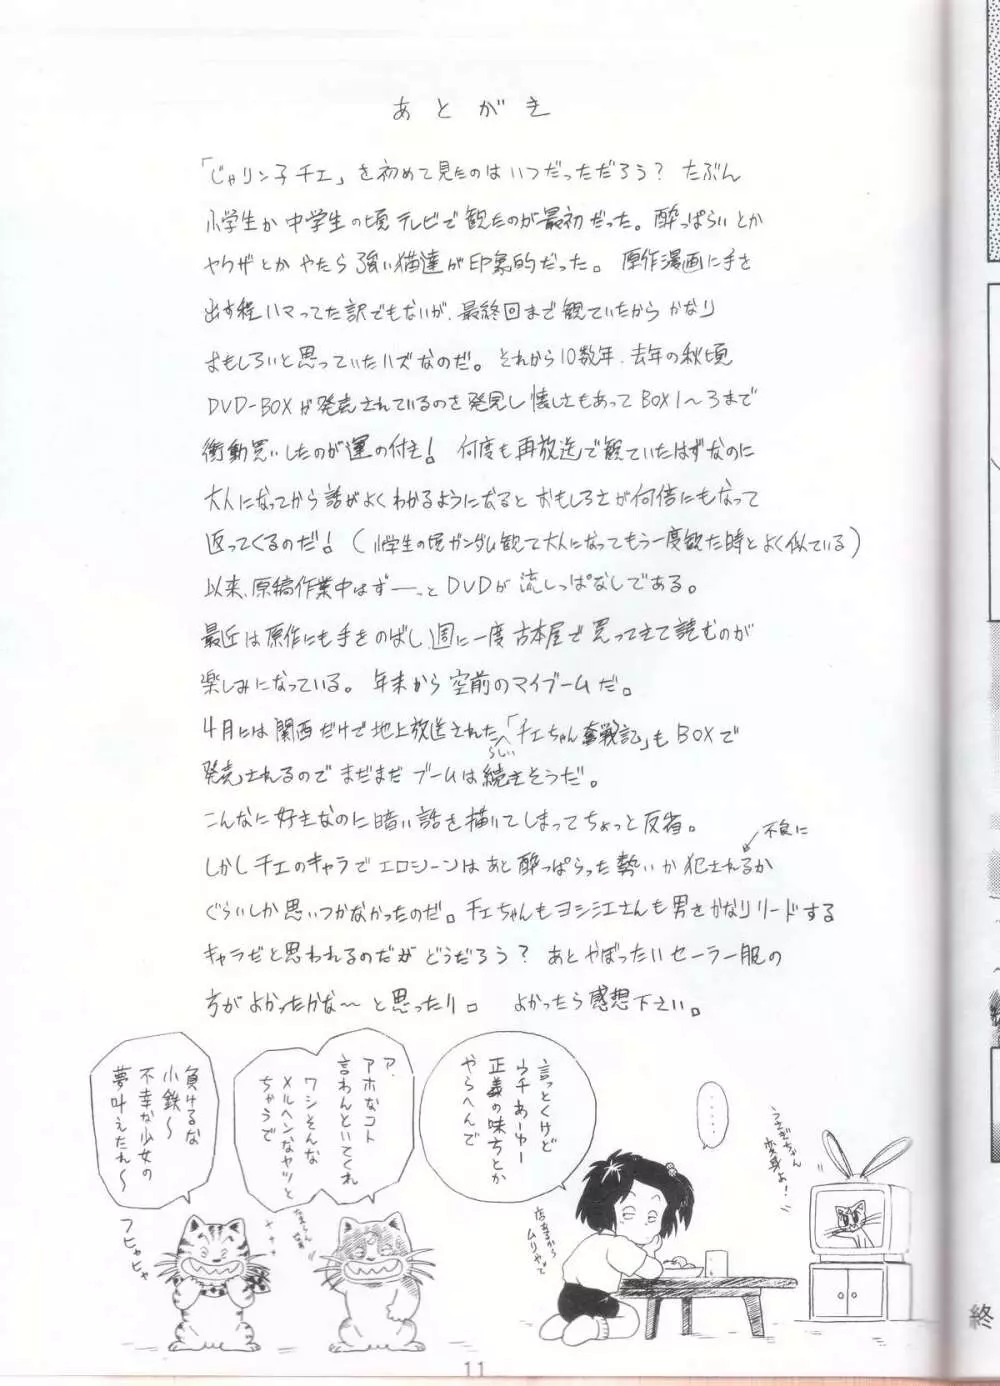 あとがき
「じゃリン子チエ」を初めて見たのはいつだっただろう？ たぶん
小学生か中学生の頃テレビで観たのが最初だった。酔っぱらいとか
ヤクザとかやたら強い猫達が印象的だった。 原作漫画に手を
出す程ハマってた訳でもないが、最終回まで観ていたからかなり
おもしろいと思っていたハズなのだ。それから10数年、去年の秋頃
DVD-BOXが発売されているのを発見し懐しさもあってBOX1～3まで
衝動買いしたのが運の付き！ 何度も再放送で観ていたはずなのに
大人になってから話がよくわかるようになるとおもしろさが何倍にもなって
返ってくるのだ！（小学生の頃ガンダム観て大人になってもう一度観た時とよく似ている）
以来、原稿作業中はずーーっとDVDが流しっぱなしである。
最近は原作にも手をのばし、週に一度古本屋で買ってきて読むのが
楽しみになっている。年末から空前のマイブームだ。
4月には関西だけで地上放送されたらしい「チエちゃん奮戦記」もBOXで
発売されるのでまだまだブームは続きそうだ。
こんなに好きなのに暗い話を描いてしまってちょっと反省。
よかったら感想下さい。
言っとくけど
ウチあーゆー
正義の味方とか
やらへんで
ア、
アホなコト
言わんといてくれ
ワシそんな
メルヘンなヤツと
ちゃうで
負けるな
小鉄～
不幸な少女の
夢叶えたれ～
‥‥‥
うさぎちゃん
変身よ！
店番から
ムリやで
フヒャヒャ
11
終